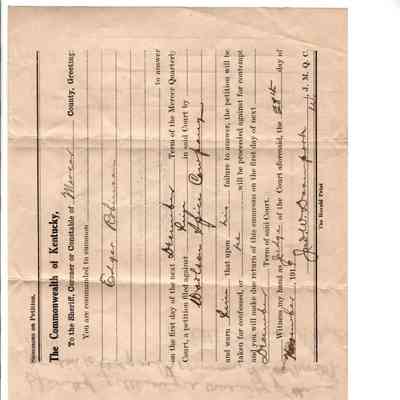 Summons on Petition.
The Commonwealth of Kentucky,
To the Sheriff, Coroner or Constable of Mercer County, Greeting:
You are commanded to summon
Edgar Robinson
to answer
on the first day of the next December Term of the Mercer Quarterly
Court, a petition filed against him in said Court by
Woolson Spice Company
and warn him that upon his failure to answer, the petition will be
taken for confessed, or he will be proceeded against for contempt
and you will make due return of this summons on the first day of next
December Term of said Court.
Witness, my hand as Judge of the Court aforesaid, the 28th day of
November, 191
J. M. Q. C.
The Herald Print